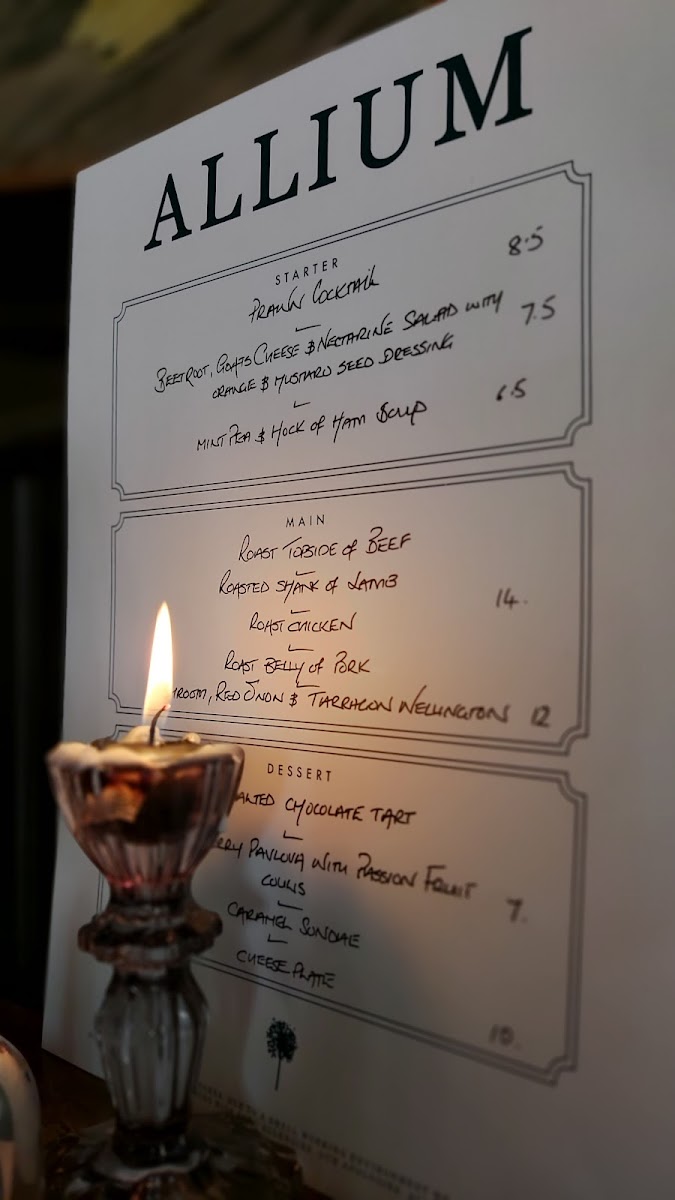 ALLIUM
STARTER
PRAWN COCKTAIL 8.5
BEETROOT, GOATS CHEESE & NECTARINE SALAD WITH 7.5
ORANGE & MUSTARD SEED DRESSING
MINT PEA & HOCK of HAM SOUP 6.5
MAIN
ROAST TOPSIDE of BEEF
ROASTED SHANK of LAMB
14.
ROAST CHICKEN
ROAST BELLY of PORK
ROOM, RED ONION & TARRAGON WELLINGTON 12
DESSERT
ALTED CHOCOLATE TART
RRY PAVLOVA WITH PASSION FRUIT
COULIS 7.
CARAMEL SUNDAE
CHEESE PLATE
10.